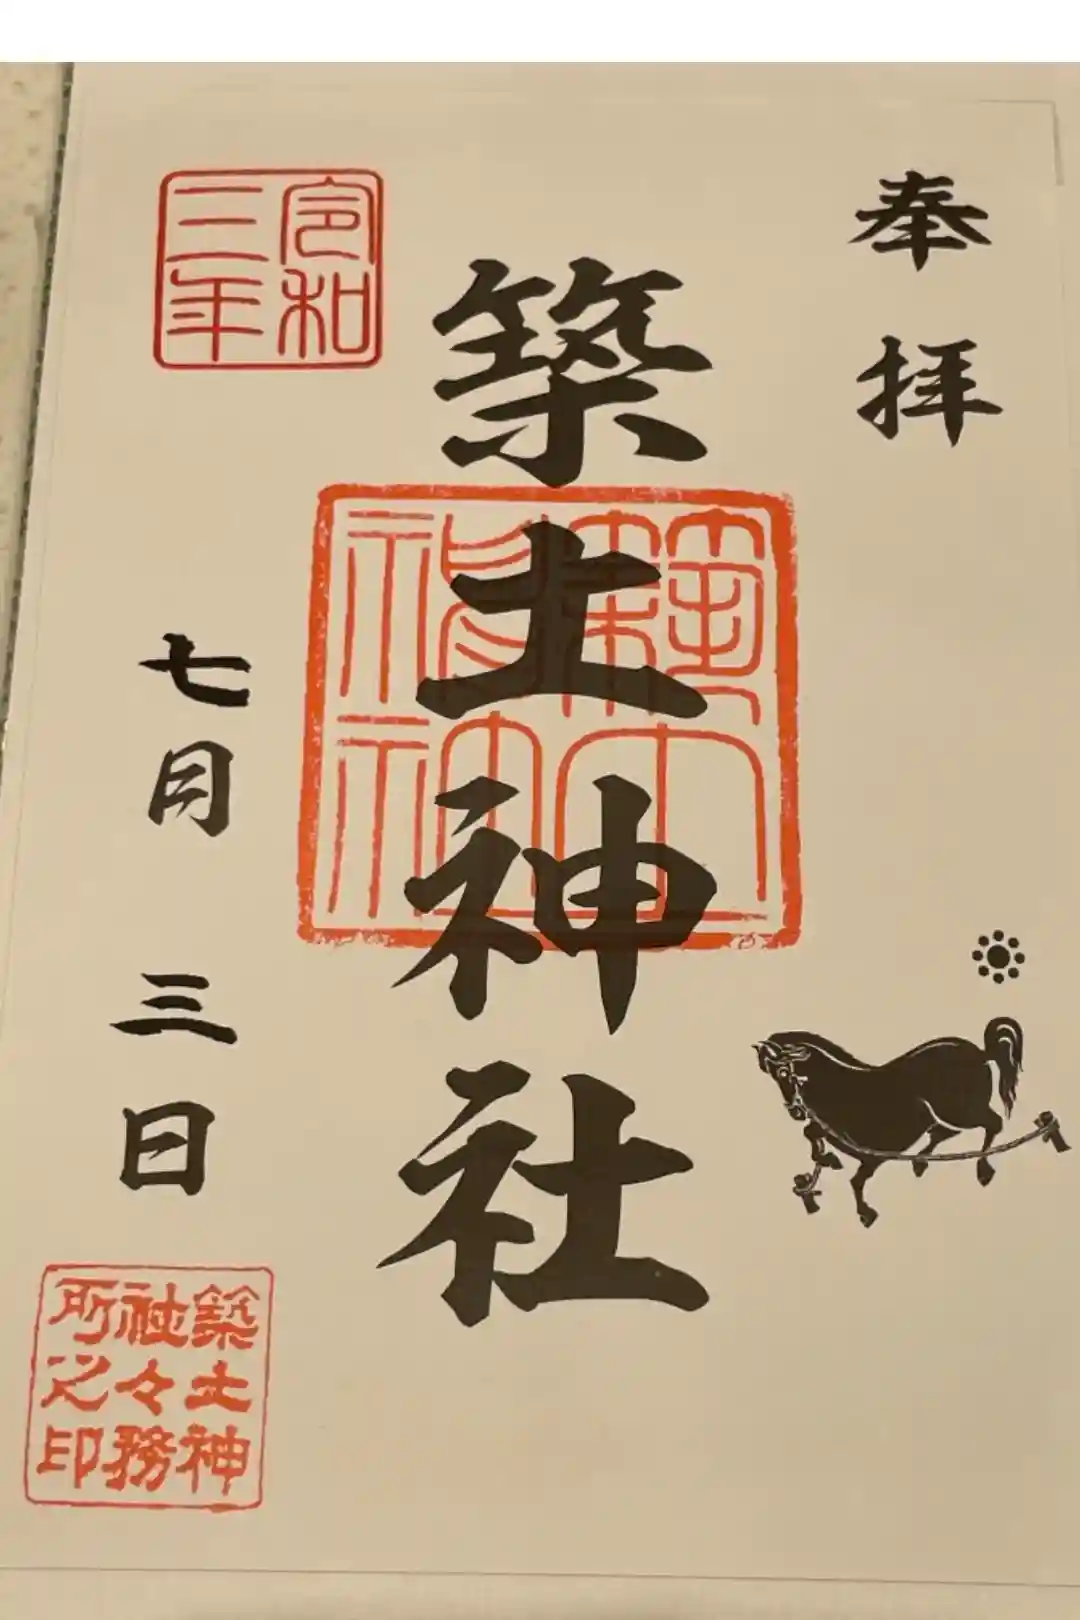 奉拝
築土神社
令和
三年
七月三日
築土神
社々務
所之印